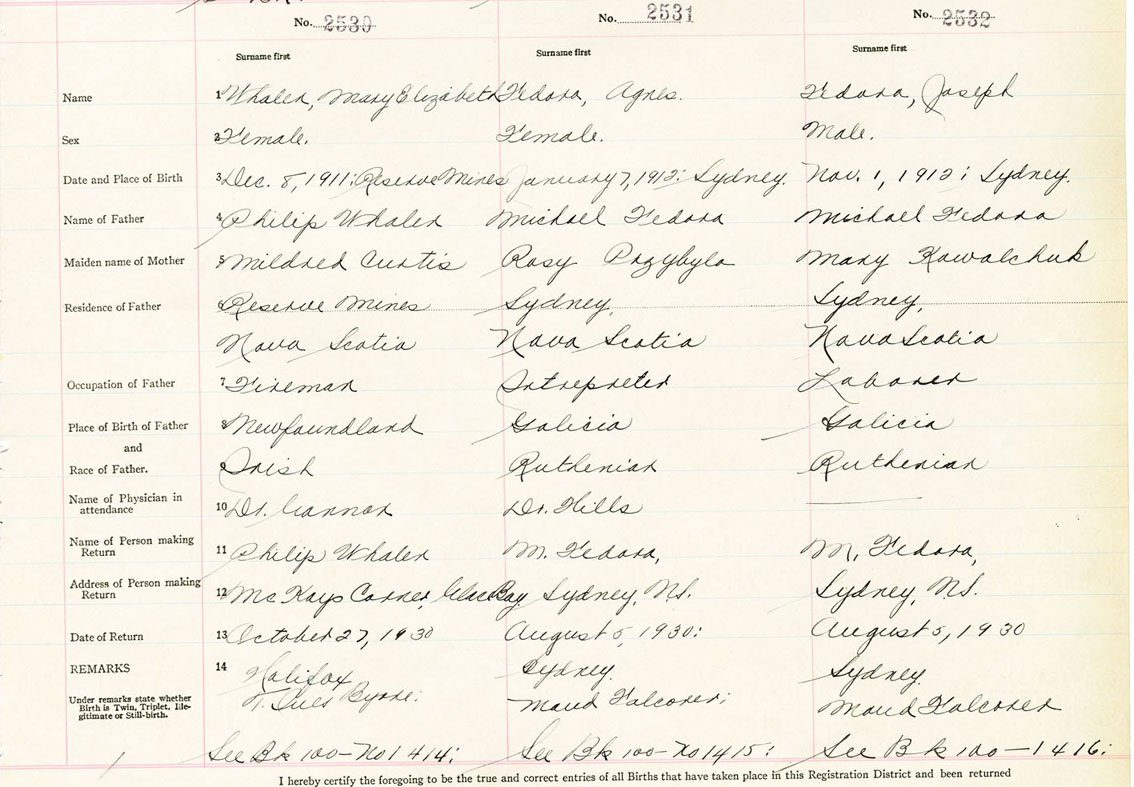 No. 2530 No. 2531 No. 2532
Surname first Surname first Surname first
Name 1 Whalen, Mary Elizabeth Fedora, Agnes. Fedora, Joseph
Sex 2 Female. Female. Male.
Date and Place of Birth 3 Dec. 8, 1911: Reserve Mines January 7, 1912: Sydney. Nov. 1, 1912: Sydney.
Name of Father 4 Philip Whalen Michael Fedora Michael Fedora
Maiden name of Mother 5 Mildred Curtis Rosy Przybyla Mary Kowalchuk
Residence of Father 6 Reserve Mines Sydney, Sydney,
Nova Scotia Nova Scotia Nova Scotia
Occupation of Father 7 Fireman Intrepreter Laborer
Place of Birth of Father 8 Newfoundland Galicia Galicia
and
Race of Father. 9 Irish Ruthenian Ruthenian
Name of Physician in
attendance 10 Dr. Cannon Dr. Hills
Name of Person making
Return 11 Philip Whalen M. Fedora, M. Fedora,
Address of Person making
Return 12 McKays Corner, Glace Bay Sydney, N.S. Sydney, N.S.
Date of Return 13 October 27, 1930 August 5, 1930: August 5, 1930
REMARKS 14 Halifax Sydney. Sydney.
Under remarks state whether
Birth is Twin, Triplet, Ille-
gitimate or Still-birth. Byrne: Maud Falconer; Maud Falconer
See Bk 100-No 1414: See Bk 100-No 1415: See Bk 100-1416:
I hereby certify the foregoing to be the true and correct entries of all Births that have taken place in this Registration District and been returned